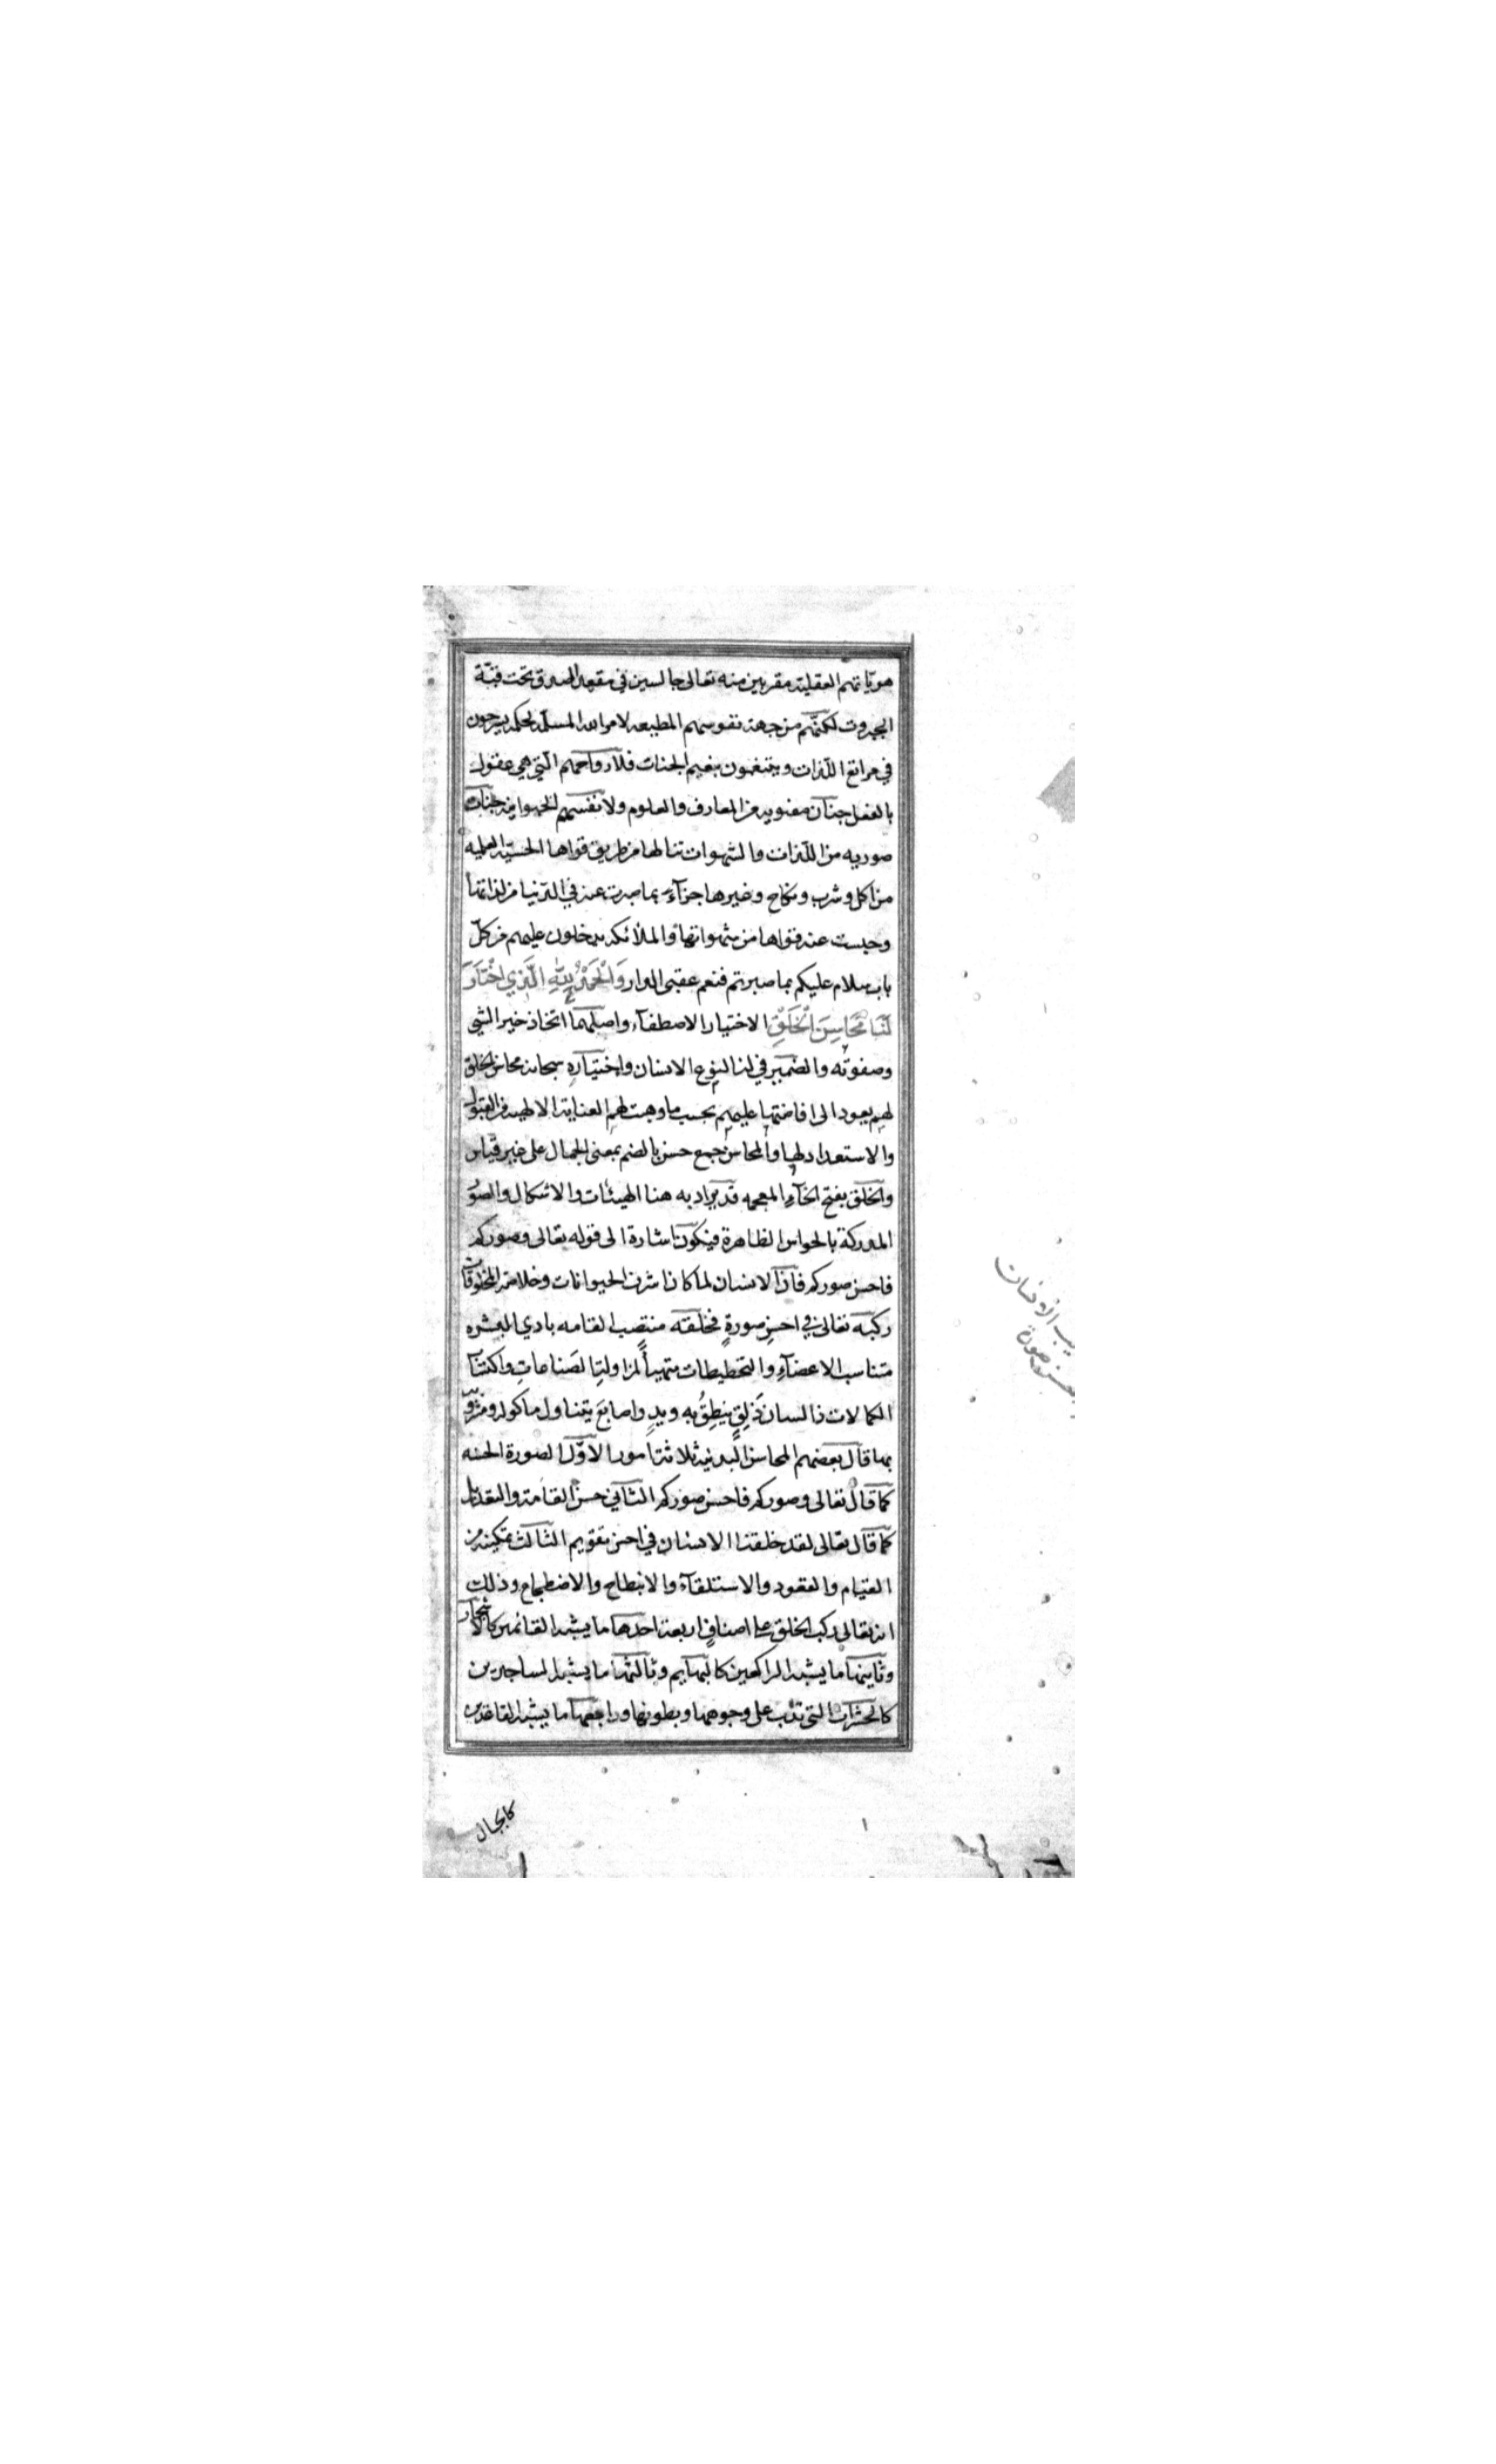 هويّاتهم العقلية مقربين منه تعالى جالسين في مقعد الصدق تحت قبّة
الجبروت لكنّهم من جهة نفوسهم المطيعه لامر الله المسلّمة لحكمه يسرحون
في مراتع اللّذات ويتنعمون بنعيم الجنات فلأرواحهم الّتي هي عقول
بالفعل جنان معنويه من المعارف والعلوم ولأنفسهم الحيوانية جنات
صوريه من اللّذات والشهوات تنالها من طريق قواها الحسّيّة العمليه
من اكل وشرب ونكاح وغيرها جزآء بما صبرت عنه في الدّنيا من لذاتها
وحبست عنه قواها من شهواتها والملائكة يدخلون عليهم من كلّ
باب سلام عليكم بما صبرتم فنعم عقبى الدار وَالْحَمْدُ لِلّٰهِ الَّذِي اخْتَارَ
لَنَا مَحَاسِنَ الْخَلْقِ الاختيار الاصطفآء واصلهما اتخاذ خير الشي
وصفوته والضمير في لنا لنوع الانسان واختياره سبحانه محاسن الخلق
لهم يعود الى افاضتها عليهم بحسب ما وهبت لهم العناية الالهية من القبول
والاستعداد لها والمحاسن جمع حسن بالضم بمعنى الجمال على غير قياس
والخلق بفتح الخآء المعجمه قد يراد به هنا الهيئات والاشكال والصور
المدركة بالحواس الظاهرة فيكون اشارة الى قوله تعالى وصوركم
فاحسن صوركم فانّ الانسان لما كان اشرف الحيوانات وخلاصة المخلوقات
ركبه تعالى في احسن صورة فخلقه منتصب القامه بادي البشره
متناسب الاعضآء والتخطيطات متهيأ لمزاولة الصناعات واكتساب
الكمالات ذا لسان ذلق ينطق به ويد واصابع يتناول ماكوله ومشروبه
بها قال بعضهم المحاسن البدنية ثلاثة امور الاوّل الصورة الحسنه
كما قال تعالى وصوركم فاحسن صوركم الثاني حسن القامة والتعديل
كما قال تعالى لقد خلقنا الانسان في احسن تقويم الثالث تمكينه من
القيام والقعود والاستلقآء والانبطاح والاضطجاع وذلك
انه تعالى ركب الخلق على اصناف اربعة احدها ما يشبه القائمين كالاشجار
وثانيها ما يشبه الراكعين كالبهايم وثالثها ما يشبه الساجدين
كالحشرات التي تدب على وجوهها وبطونها ورابعها ما يشبه القاعدين
كالجبال
الانسان
صورة